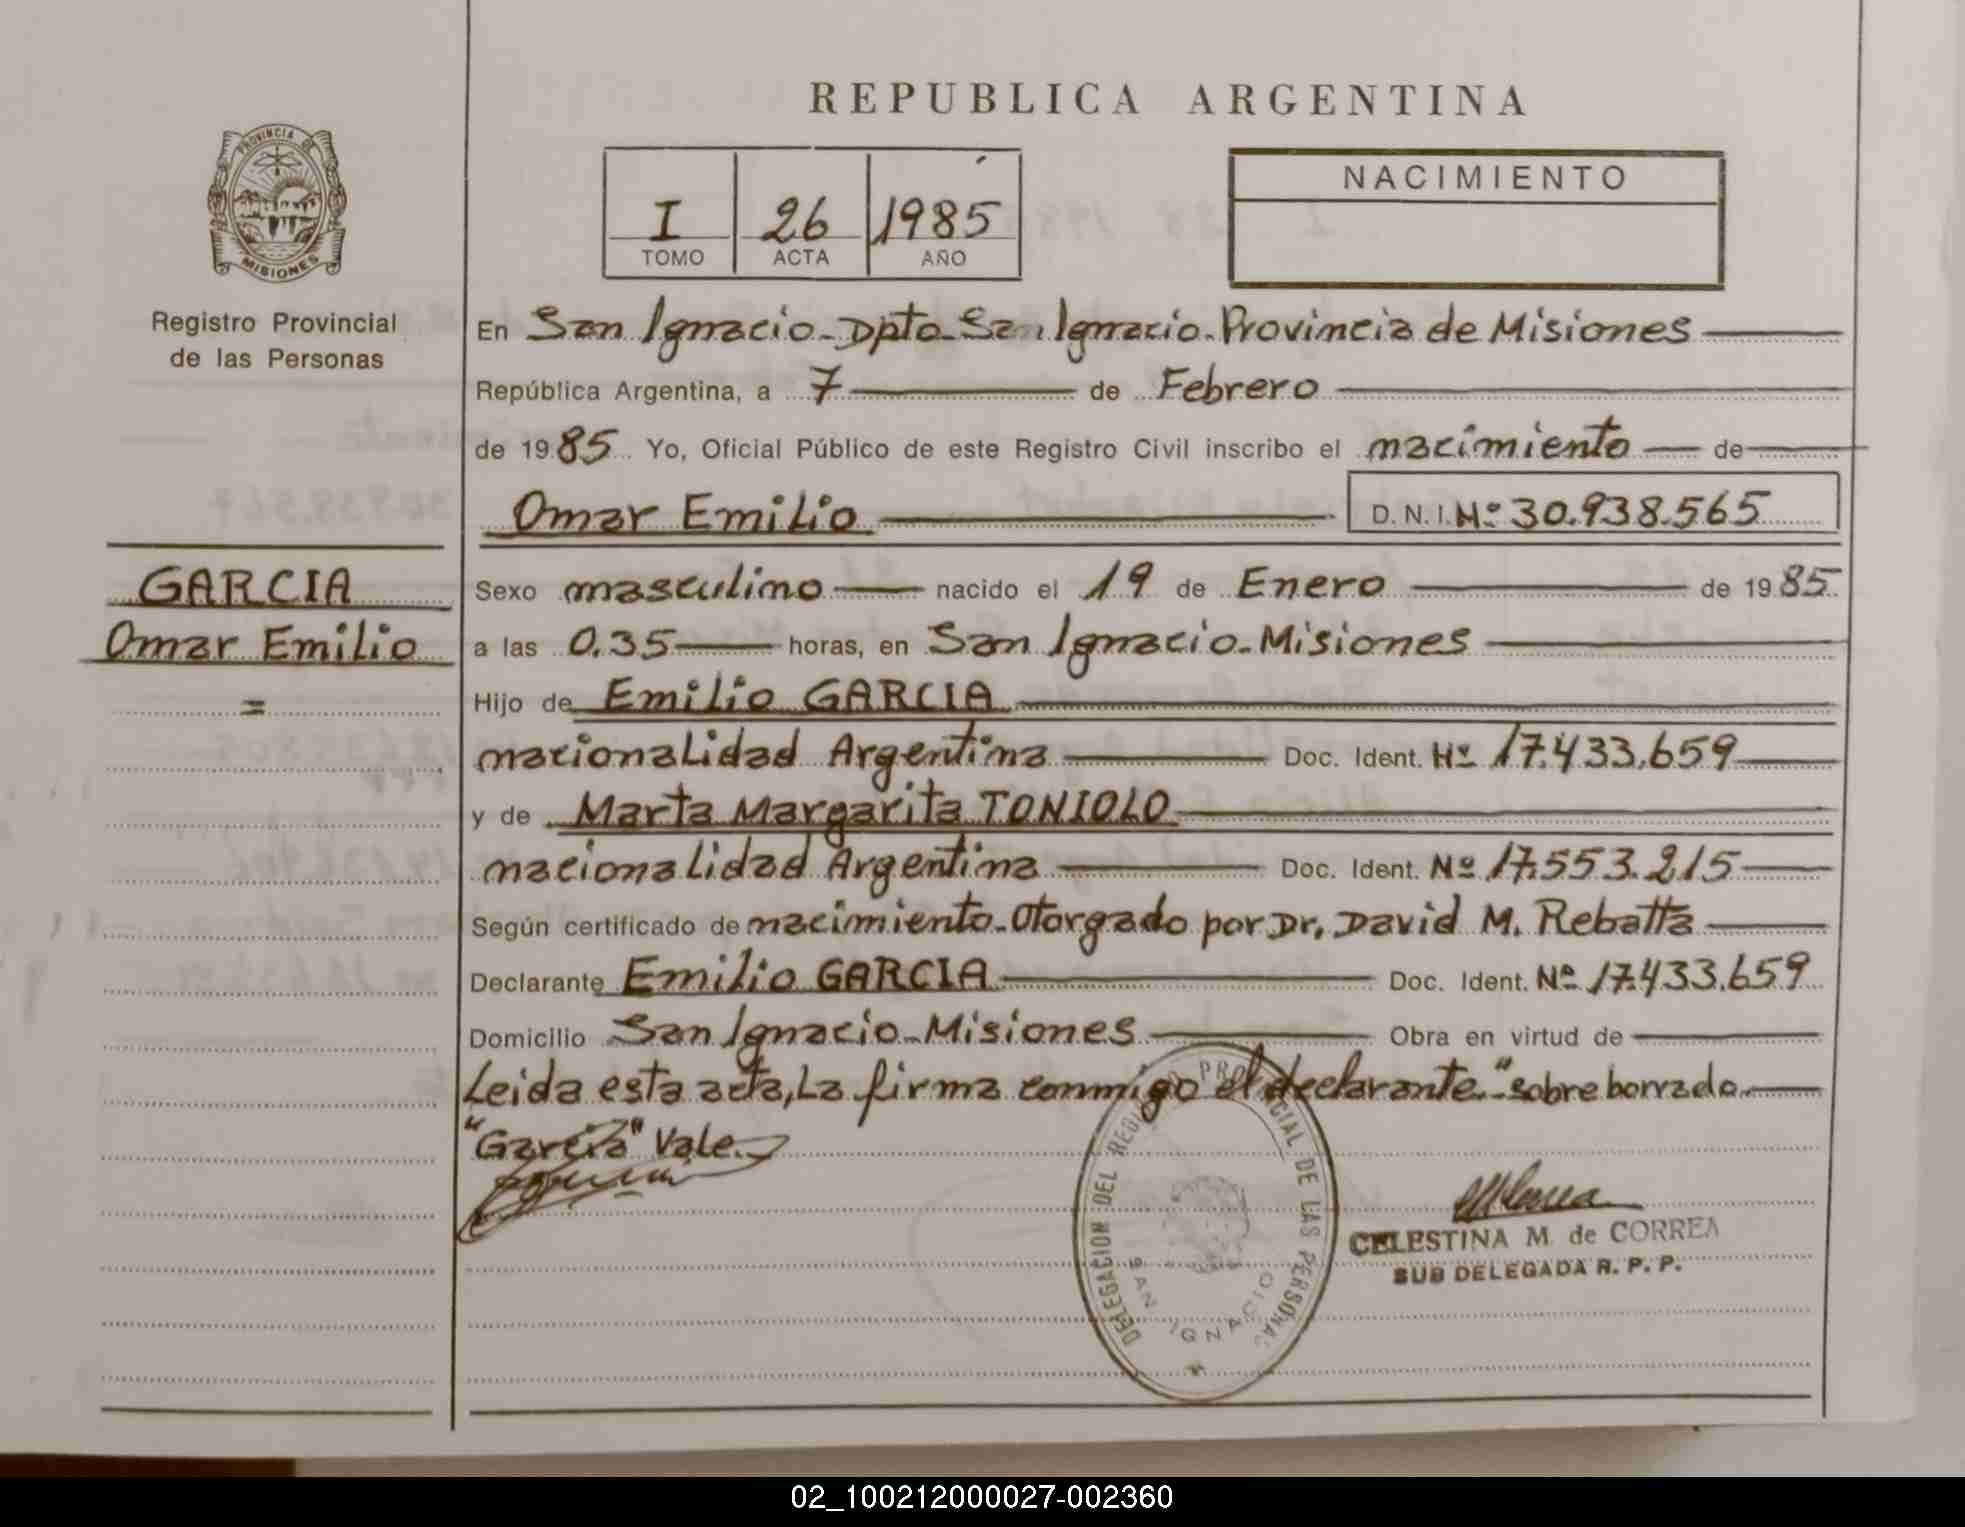 REPUBLICA ARGENTINA
PROVINCIA DE
MISIONES
Registro Provincial
de las Personas
I 26 1985
TOMO ACTA AÑO
NACIMIENTO
En San Ignacio - Dpto - San Ignacio - Provincia de Misiones
República Argentina, a 7 de Febrero
de 1985 Yo, Oficial Público de este Registro Civil inscribo el nacimiento de
Omar Emilio D. N. I. Nº 30.938.565
GARCIA
Omar Emilio
=
Sexo masculino nacido el 19 de Enero de 1985
a las 0.35 horas, en San Ignacio - Misiones
Hijo de Emilio GARCIA
nacionalidad Argentina Doc. Ident. Nº 17.433.659
y de Marta Margarita TONIOLO
nacionalidad Argentina Doc. Ident. Nº 17.553.215
Según certificado de nacimiento - Otorgado por Dr. David M. Rebatta
Declarante Emilio GARCIA Doc. Ident. Nº 17.433.659
Domicilio San Ignacio - Misiones Obra en virtud de
Leida esta acta, La firma conmigo el declarante.-"sobre borrado
"Garcia" Vale.
DELEGACION DEL REGISTRO PROVINCIAL DE LAS PERSONAS
SAN IGNACIO
CELESTINA M. de CORREA
SUB DELEGADA R. P. P.
02_100212000027-002360